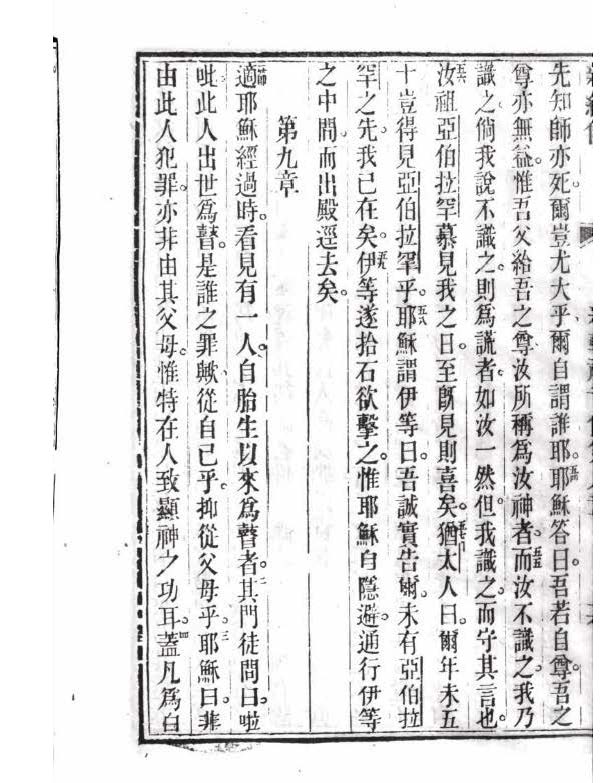 先知師亦死爾豈尤大乎爾自謂誰耶。五四耶穌答曰。吾若自尊。吾之
尊亦無益。惟吾父給吾之尊汝所稱為汝神者。五五而汝不識之。我乃
識之。倘我說不識之。則為謊者如汝一然。但我識之。而守其言也。
五六汝祖亞伯拉罕慕見我之日。至既見則喜矣。五七猶太人曰。爾年未五
十豈得見亞伯拉罕乎。五八耶穌謂伊等曰。吾誠實告爾。未有亞伯拉
罕之先。我已在矣。五九伊等遂拾石欲擊之。惟耶穌自隱避。通行伊等
之中間而出殿逕去矣。
第九章
適耶穌經過時。看見有一人。自胎生以來為瞽者。二其門徒問曰。啦
吡此人出世為瞽。是誰之罪歟。從自己乎。抑從父母乎。三耶穌曰。非
由此人犯罪。亦非由其父母。惟特在人致顯神之功耳。四蓋凡為白